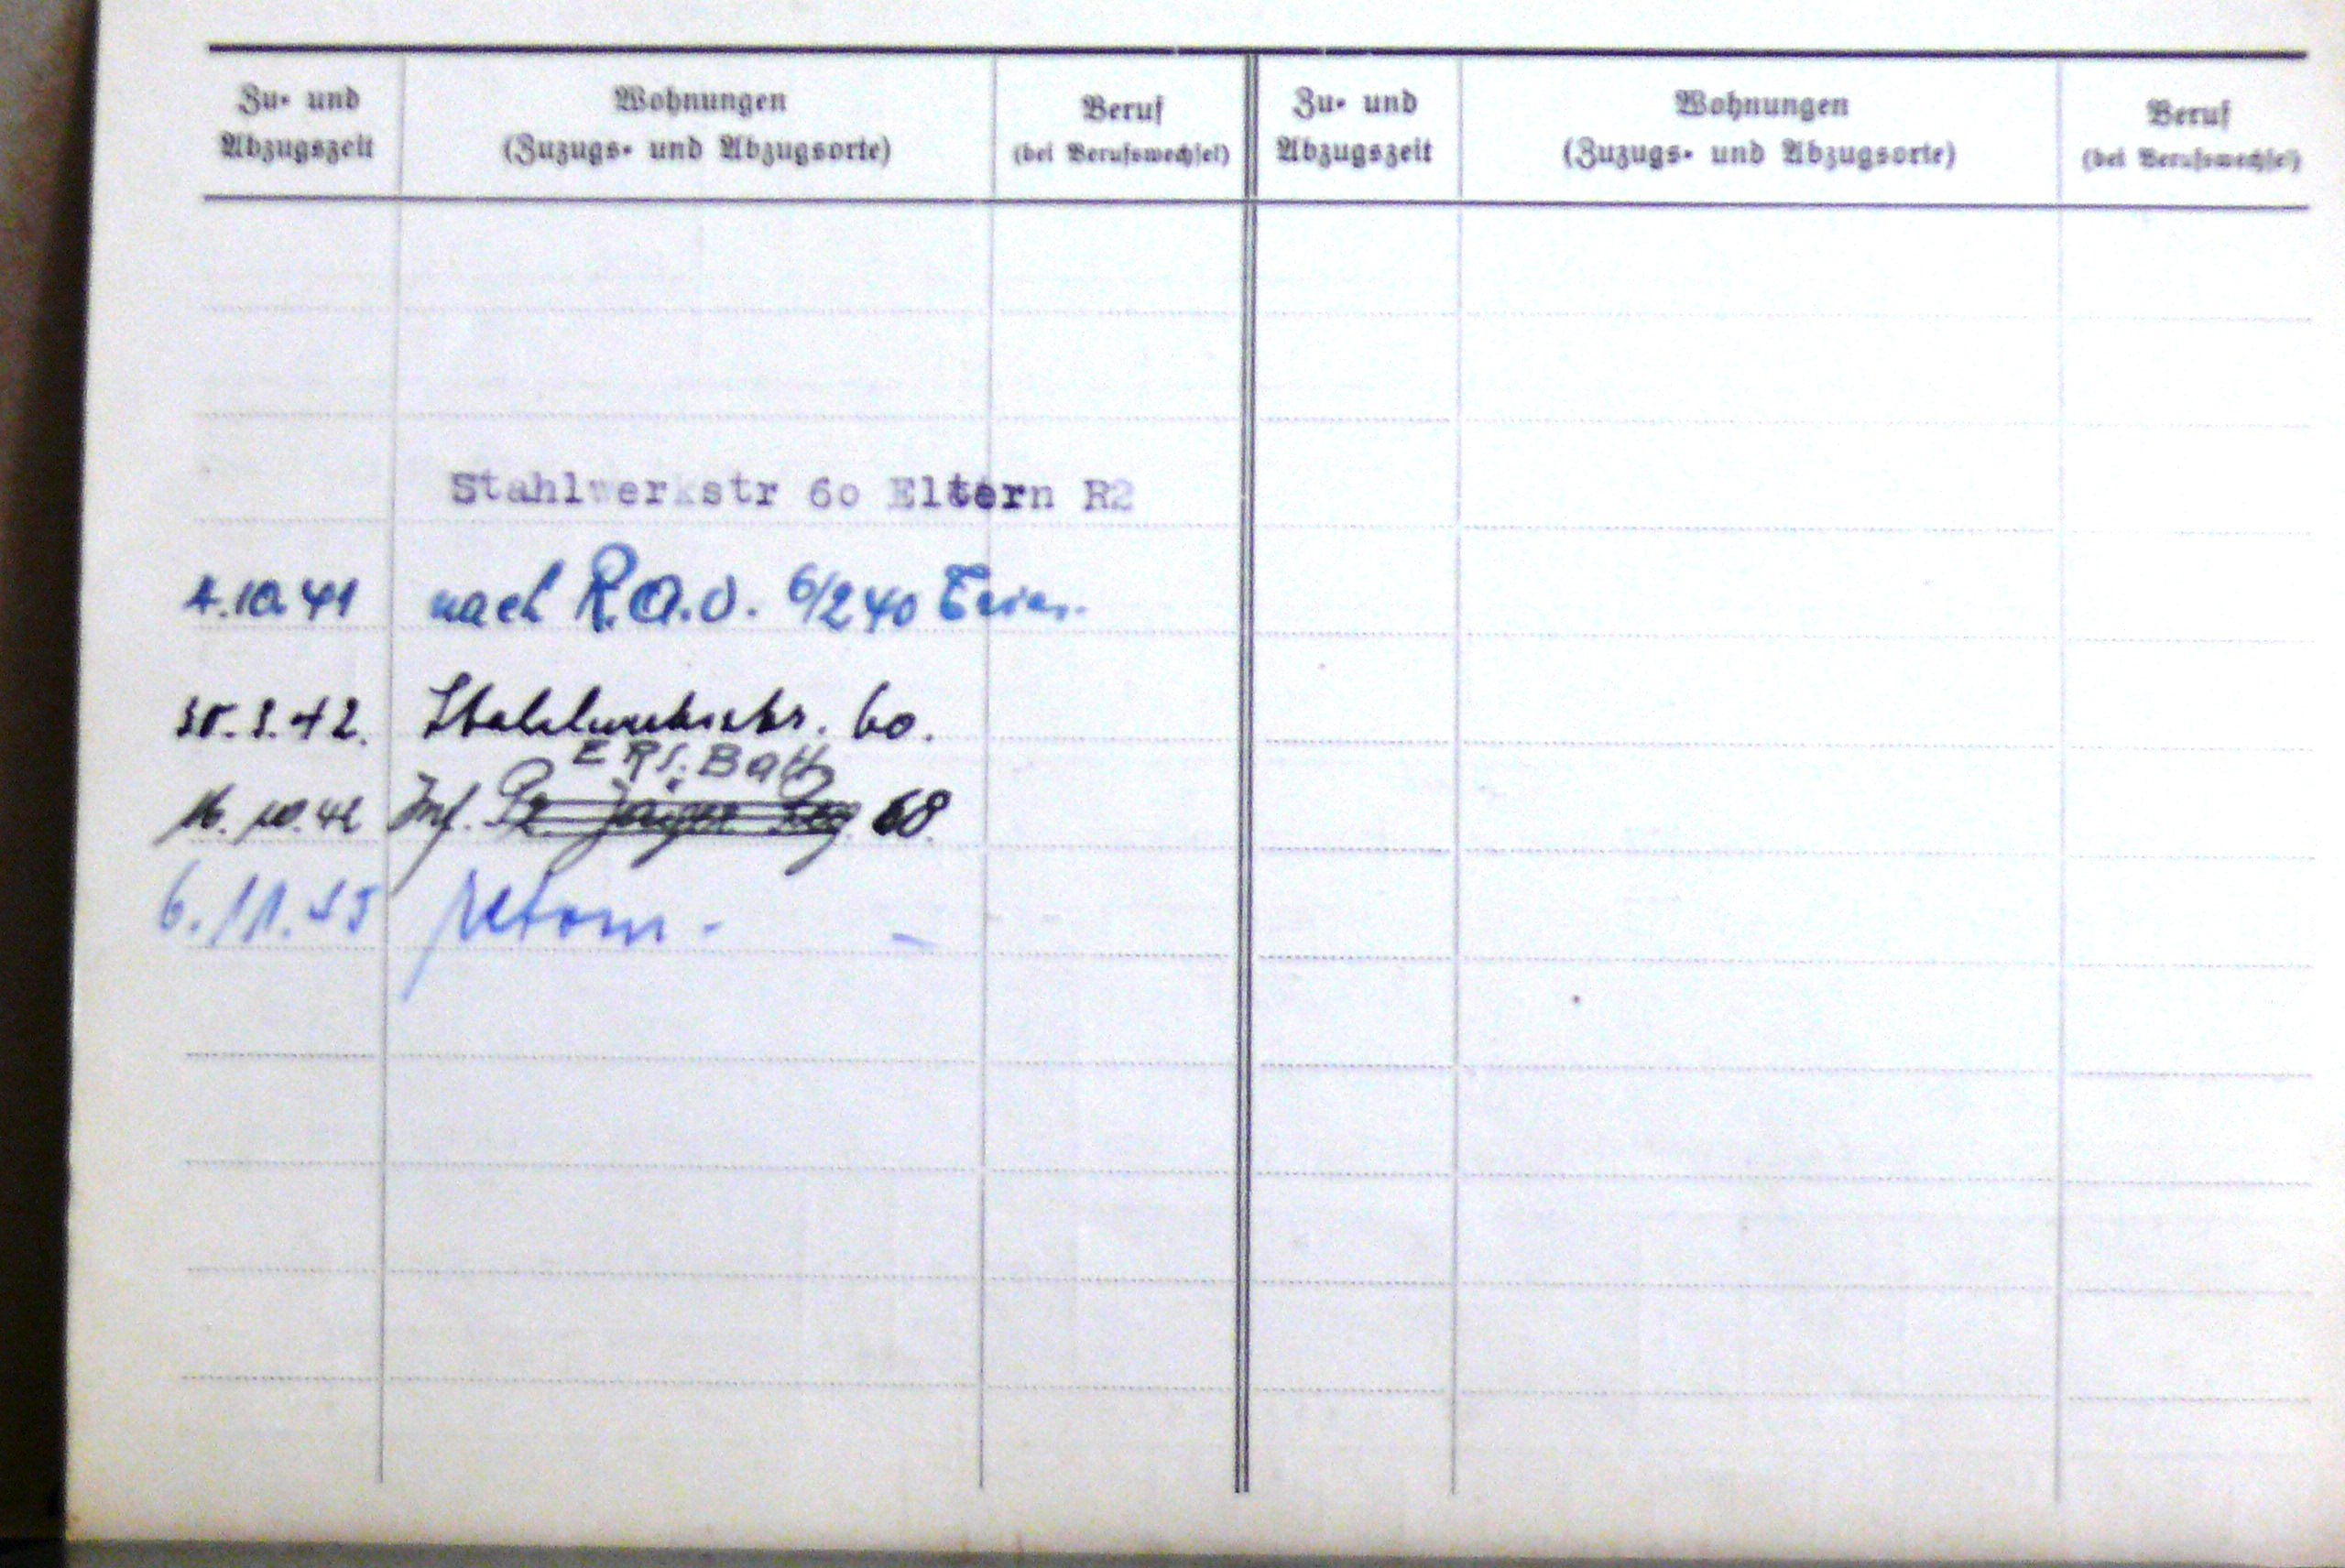 Zu- und Abzugszeit
Wohnungen (Zuzugs- und Abzugsorte)
Beruf (bei Berufswechsel)
Zu- und Abzugszeit
Wohnungen (Zuzugs- und Abzugsorte)
Beruf (bei Berufswechsel)
Stahlwerkstr 60 Eltern R2
4.10.41 nach R.A.D. 6/240 Trier.
42. Stahlwerkstr. 60.
Ers. Batt
16.10.42 Inf. Pz Jäger 68.
6.11.45